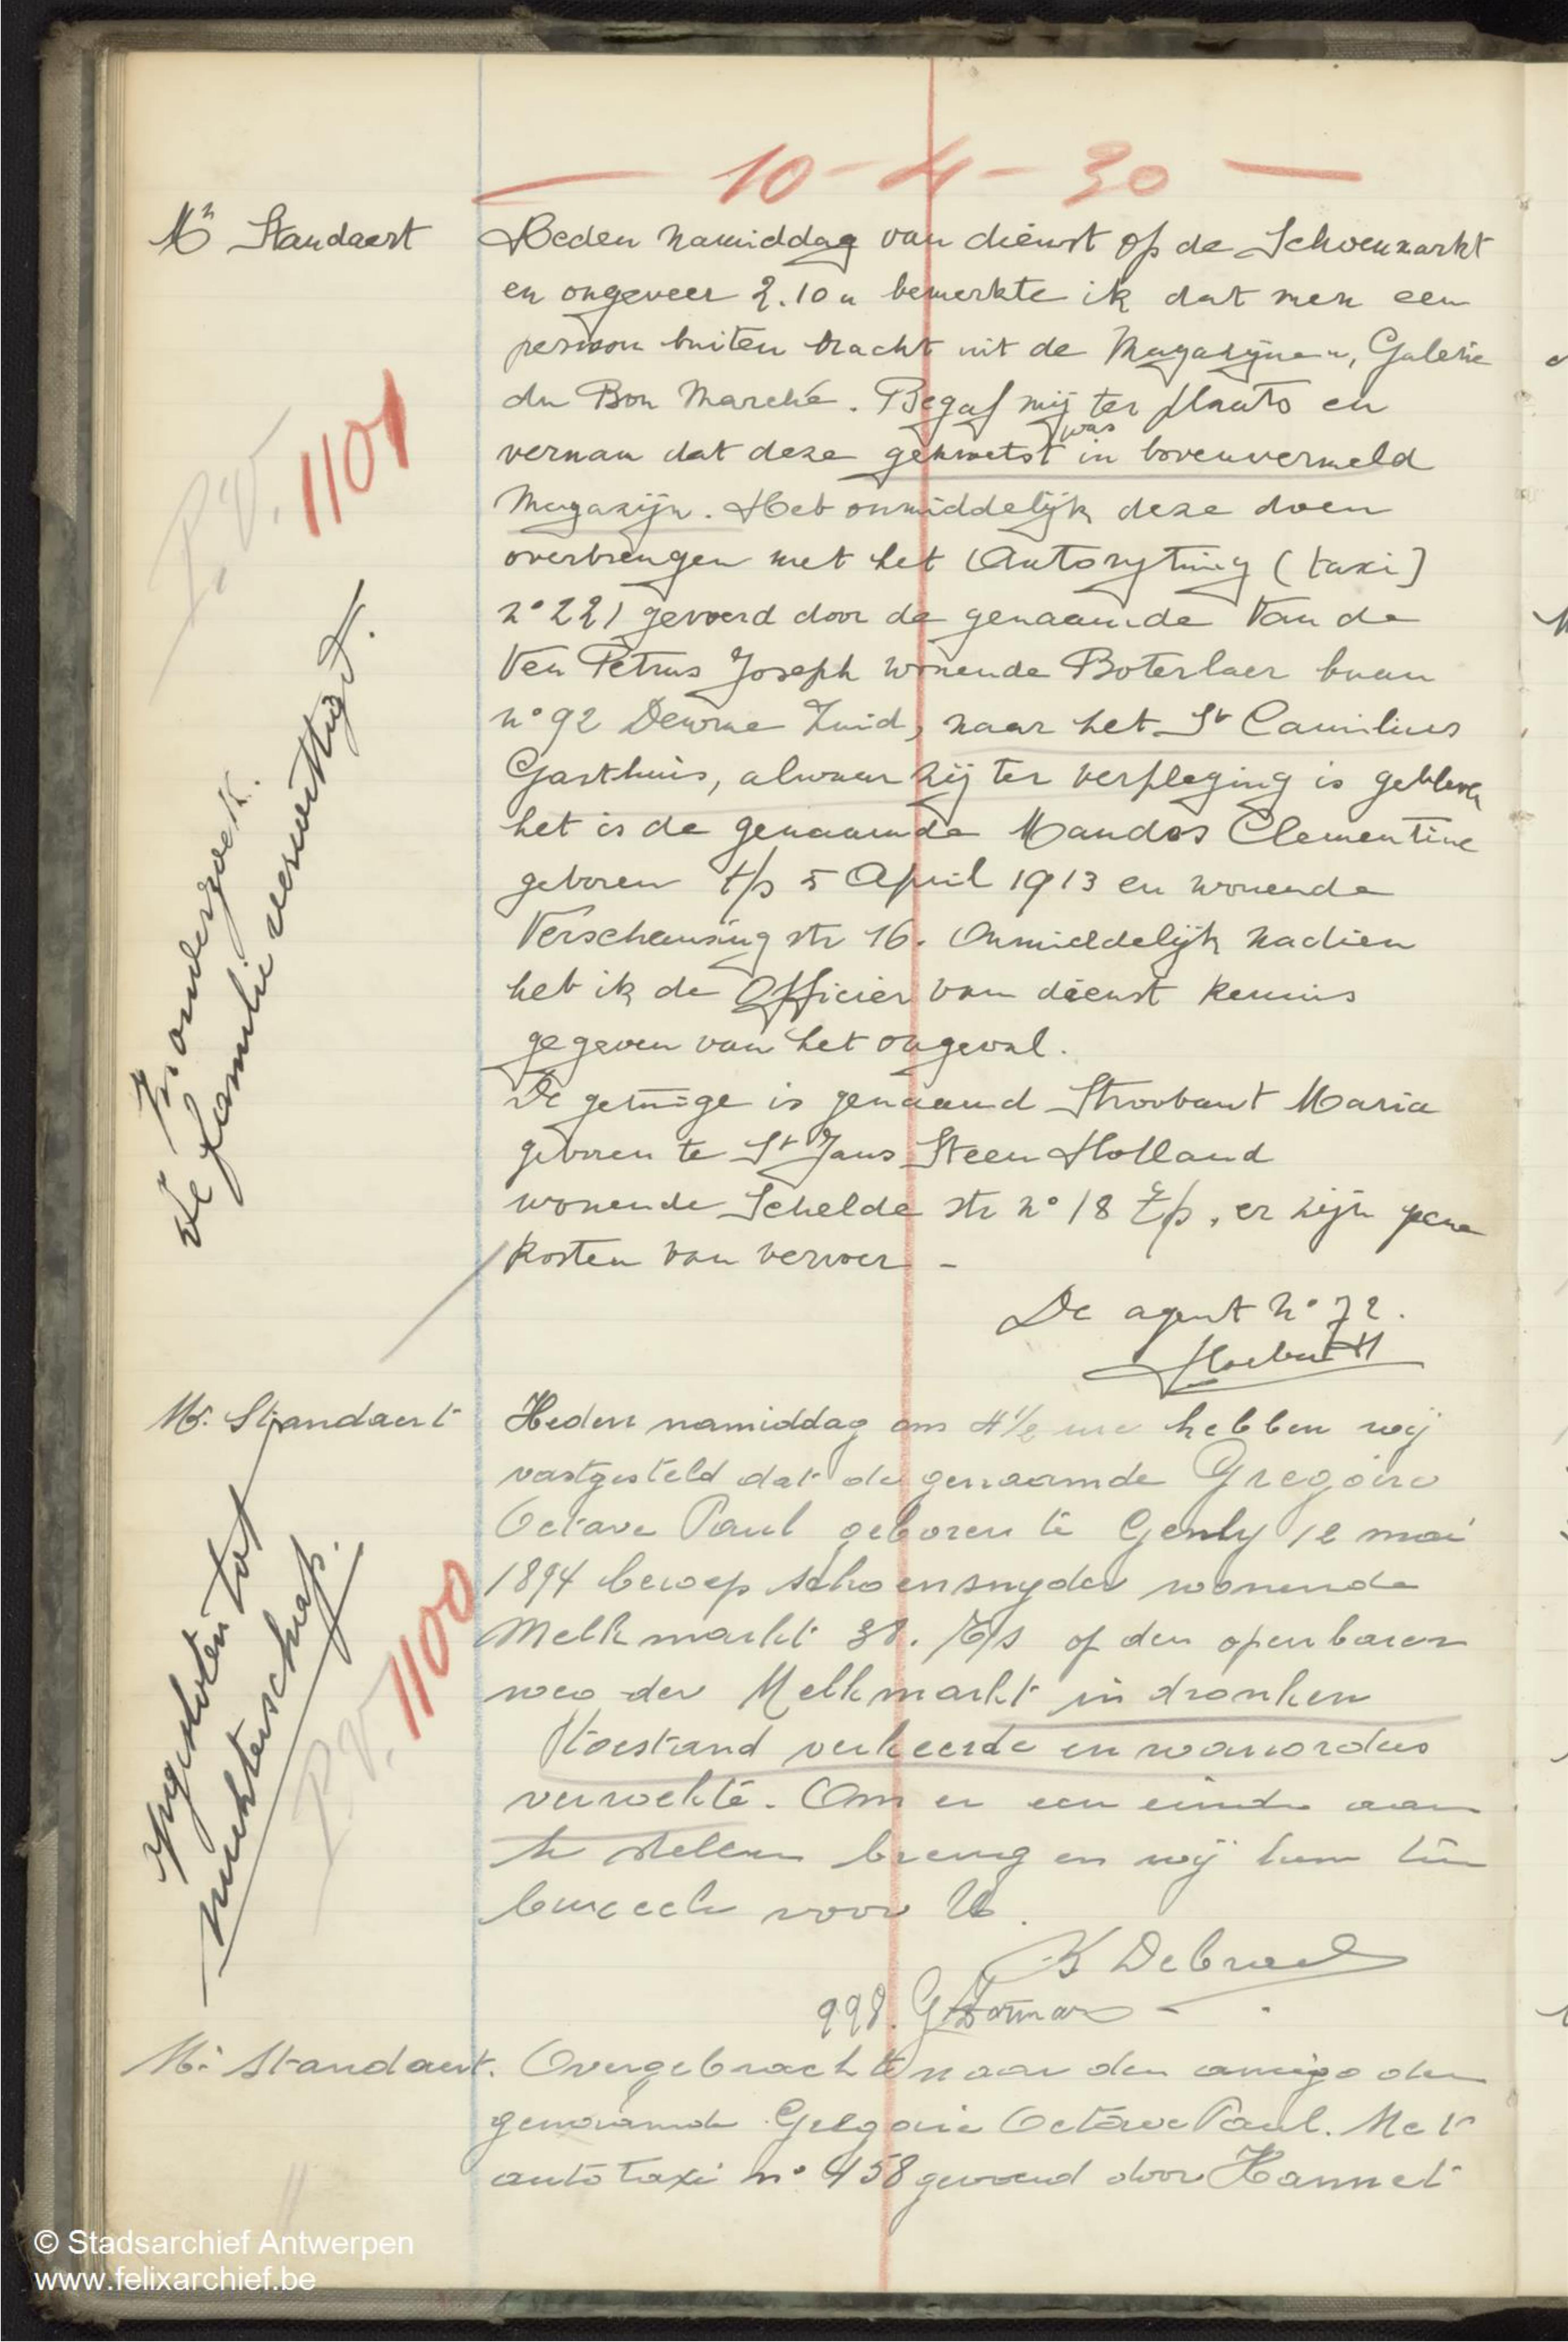 — 10 - 4 - 30 —
Mr Standaert
Heden namiddag van dienst op de Schoenmarkt
en ongeveer 2.10 u bemerkte ik dat men een
persoon buiten bracht uit de Magazijnen, Galerie
du Bon Marché. Begaf mij ter plaats en
vernam dat deze gekwetst was in bovenvermeld
Magazijn. Heb onmiddelijk deze doen
overbrengen met het Autorytuig (taxi)
n° 221 gevoerd door de genaamde Van de
Ven Petrus Joseph wonende Boterlaer baan
n° 92 Deurne Zuid, naar het St Camilius
Gasthuis, alwaar zij ter verpleging is gebleven
het is de genaamde Mandos Clementine
geboren t/s 5 April 1913 en wonende
Verschansing str 16. Onmiddelijk nadien
heb ik de Officier van dienst kennis
gegeven van het ongeval.
De getuige is genaamd Stroobant Maria
geboren te St Jans Steen Holland
wonende Schelde str n° 18 t/s, er zijn geene
kosten van vervoer -
De agent n° 72.
P.V. 1101
In onderzoek.
De familie verwittigd.
Mr. Standaert
Heden namiddag om 4 1/2 ure hebben wij
vastgesteld dat de genaamde Gregoire
Octave Paul geboren te Genly 12 mai
1894 beroep schoensnyder wonende
Melkmarkt 38. t/s op den openbaren
weg der Melkmarkt in dronken
toestand verkeerde en wanordees
verwekte. Om er een einde aan
te stellen brengen wij hem ten
bureele voor U.
K Debrael
998. G
Opgesloten tot
nuchterschap.
P.V. 1100
Mr Standaert.
Overgebracht naar den amigo den
genaamde Gregoire Octave Paul. Met
auto taxi n° 458 gevoerd door Hannet
© Stadsarchief Antwerpen
www.felixarchief.be